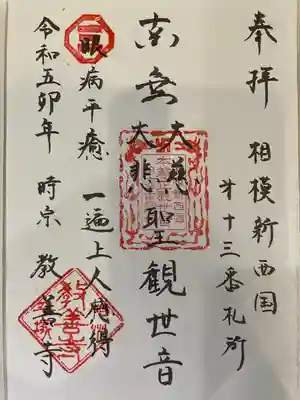 奉拝 相模新西国
才十三番札所
南無大慈大悲聖観世音
眼病平癒 一遍上人
令和五卯年 時宗 教善寺
教善寺